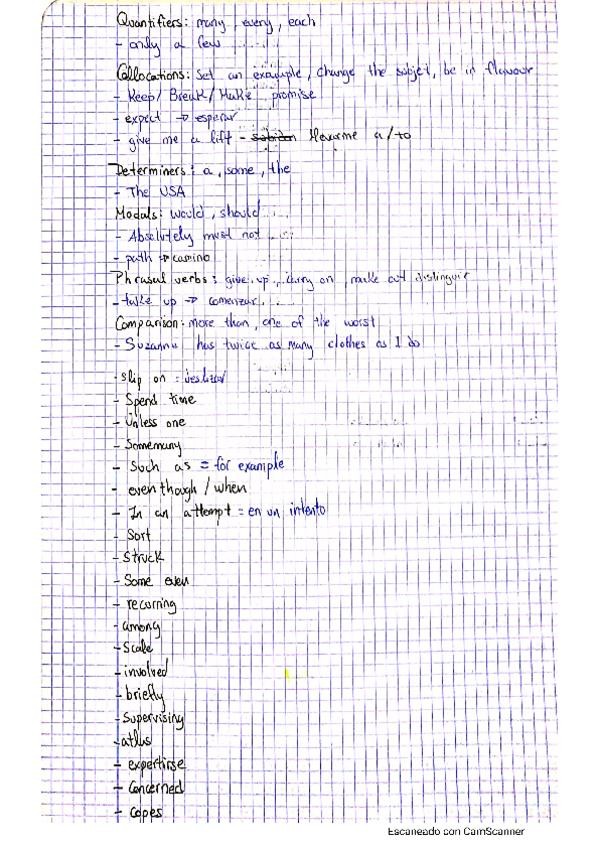 Quantifiers: many, every, each
- only a few ......
Collocations: Set an example, Change the subjet, be in flavour
- Keep/ Break/ Make promise
- expect → esperar
- give me a lift - llevarme a/to
Determiners: a, some, the
- The USA
Modals: would, should....
- Absolutely must not ....
- path → camino
Phrasal verbs: give up, carry on, make out distinguir
- take up → comenzar....
Comparison: more than, one of the worst
- Suzanna has twice as many clothes as I do
- slip on =
- Spend time
- Unless one
- Somemany
- Such as = for example
- even though / when
- In an attempt = en un intento
- Sort
- Struck
- Some even
- recurring
- among
- Scale
- involved
- briefly
- Supervising
- atlas
- expertirse
- Concerned
- copes
Escaneado con CamScanner